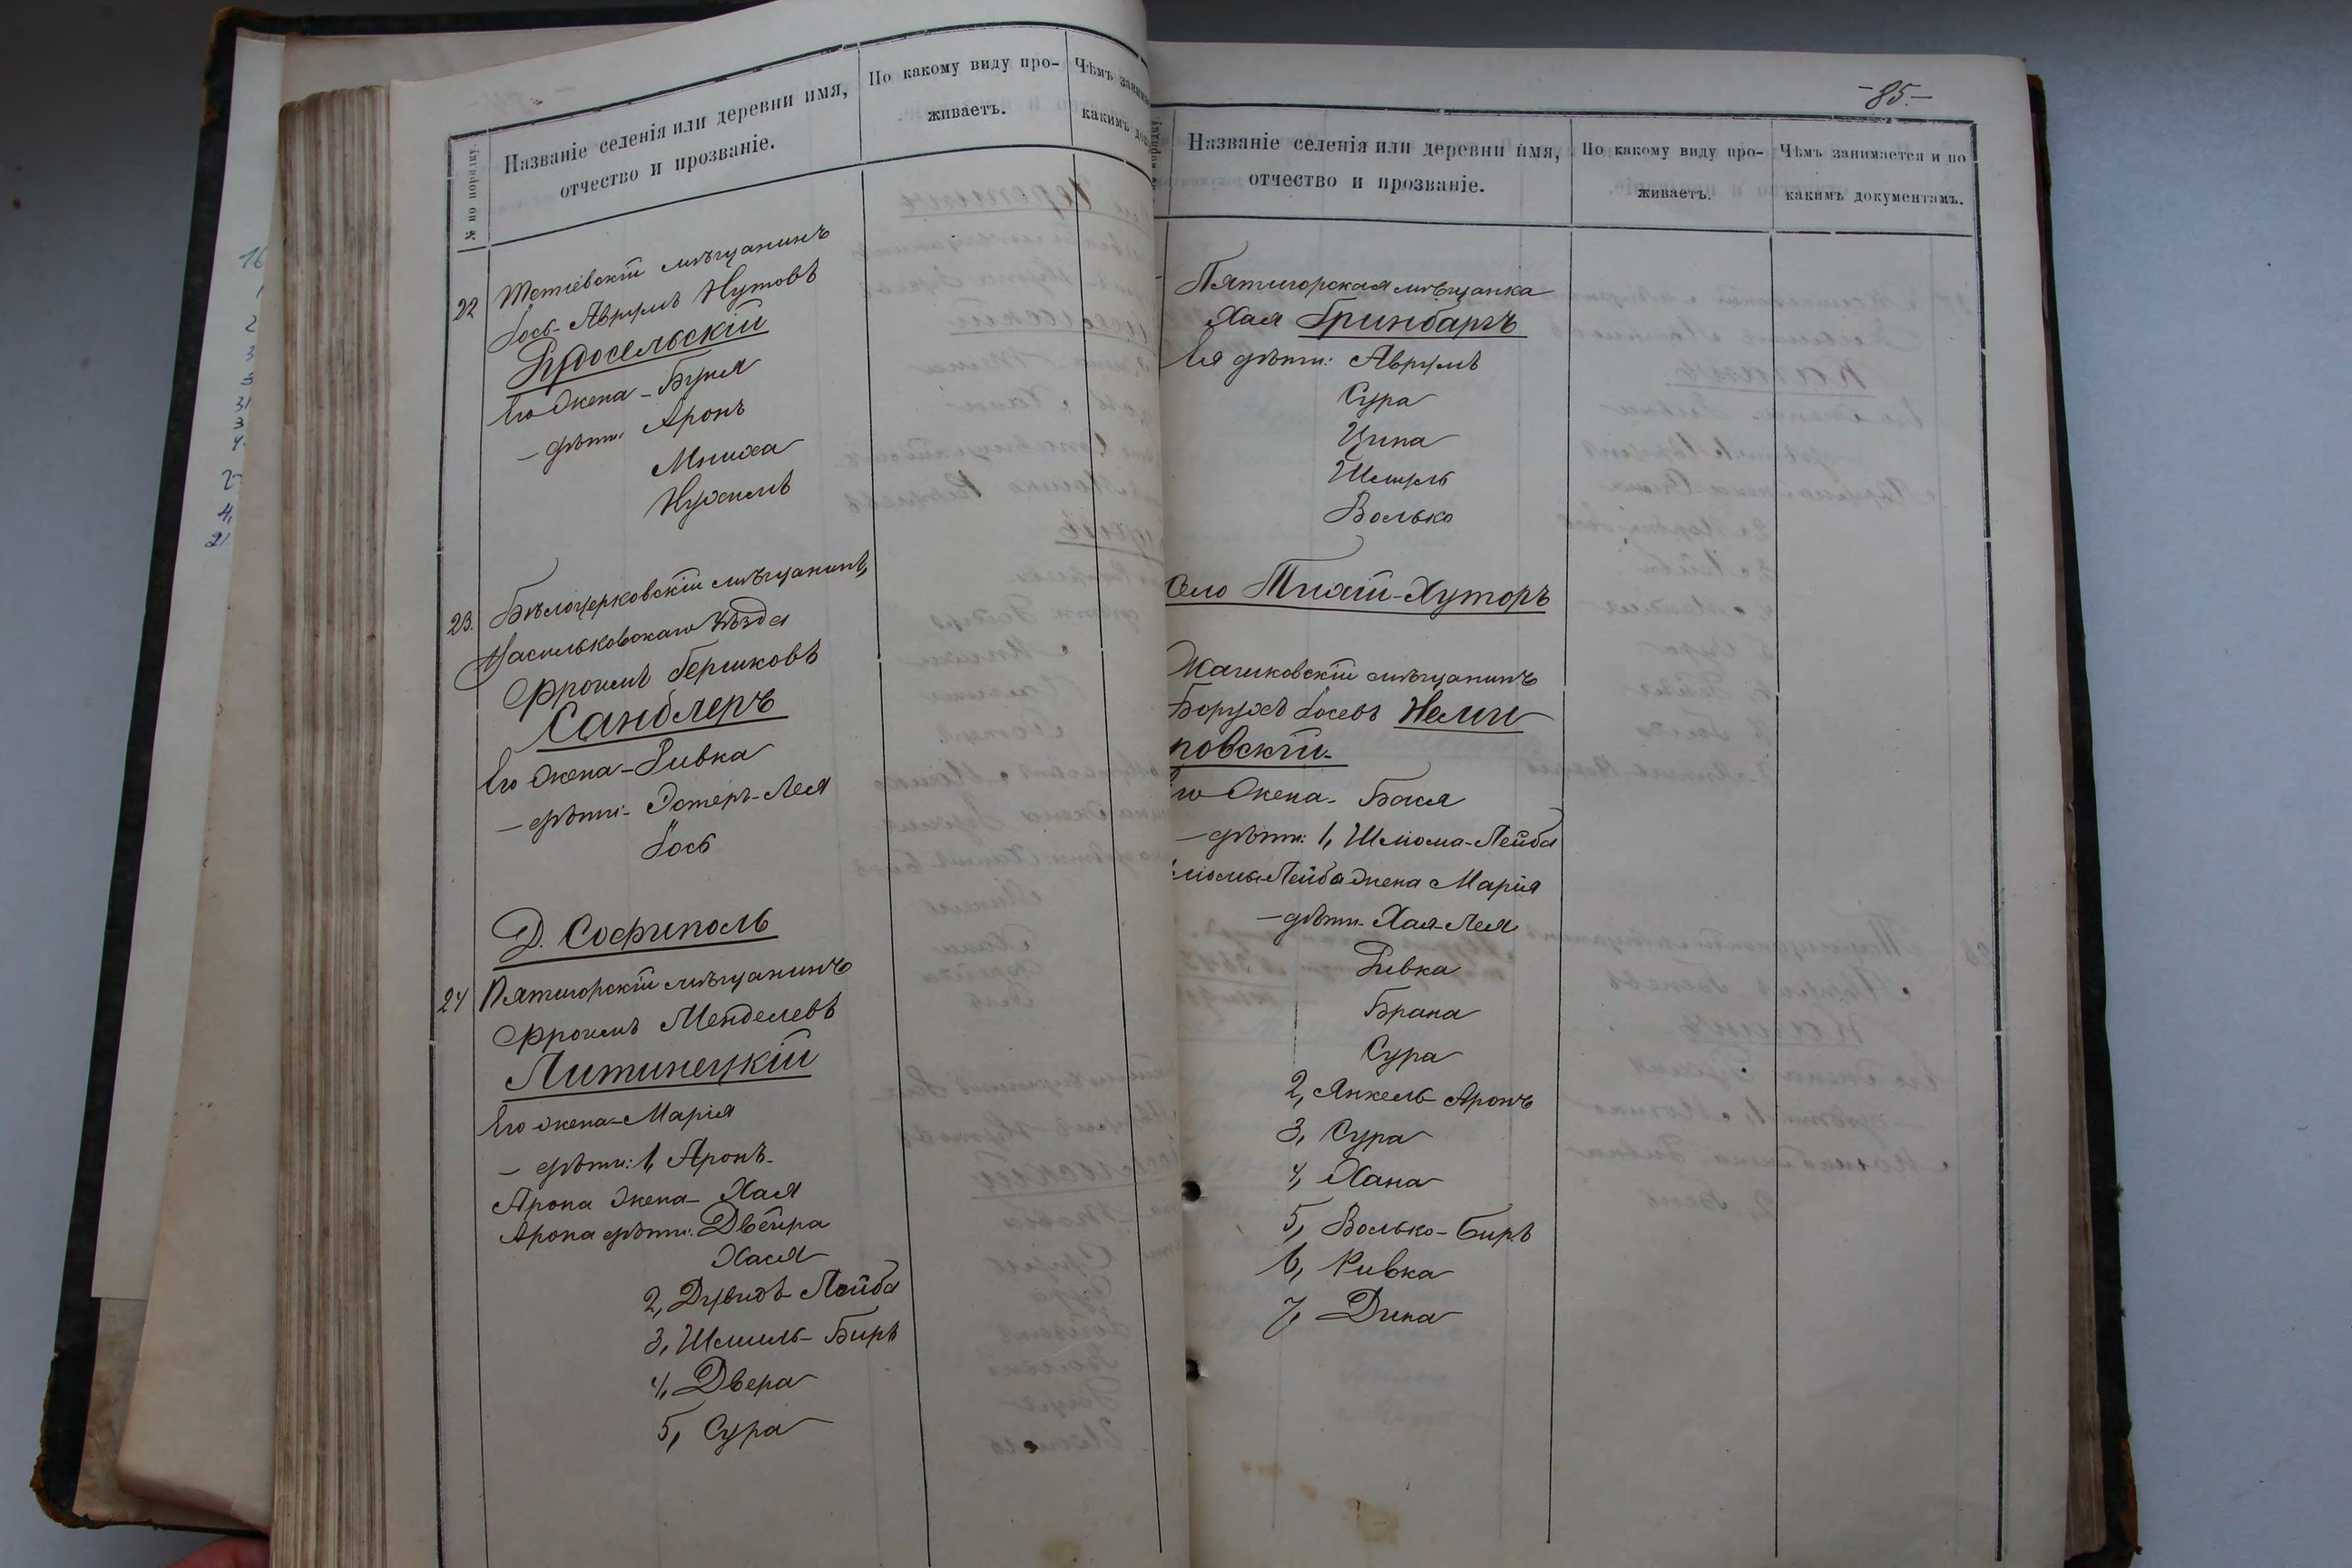 № по порядку.
Названіе селенія или деревни имя,
отчество и прозваніе.
По какому виду про-
живаетъ.
Чѣмъ
какимъ
22 Тетіевскій мѣщанинъ
Іось-Аврумъ Нутовъ
Бѣло Жена - Буня
- дѣти: Аронъ
Мниха
Нухимъ
23. Бѣлоцерковскій мѣщанинъ,
Васильковскаго Уѣзда
Фроимъ Гершковъ
Сандлеръ
Его Жена - Ривка
- дѣти - Эстеръ-Лея
Іось
Д. Софиполь
24 Пятигорскій мѣщанинъ
Фроимъ Менделевъ
Литинецкій
Его жена - Марія
- дѣти: 1, Аронъ.
Арона Жена - Хая
Арона дѣти: Двейра
Хася
2, Дувидъ Лейба
3, Шмиль-Биръ
4, Двера
5, Сура
-85.-
Названіе селенія или деревни имя,
отчество и прозваніе.
По какому виду про-
живаетъ.
Чѣмъ занимается и по
какимъ документамъ.
Пятигорская мѣщанка
Хая Гринбаръ
Ея дѣти: Аврумъ
Сура
Ципа
Шмуль
Волько
Село Тихій-Хуторъ
Жашковскій мѣщанинъ
Борухъ Іосевъ Неми
ровскій
Жена - Бася
- дѣти: 1, Шліома-Лейба
Лейба жена Марія
- дѣти - Хая-Лея
Ривка
Брана
Сура
2, Янкель Аронъ
3, Сура
4, Хана
5, Волько-Биръ
6, Ривка
7, Дина